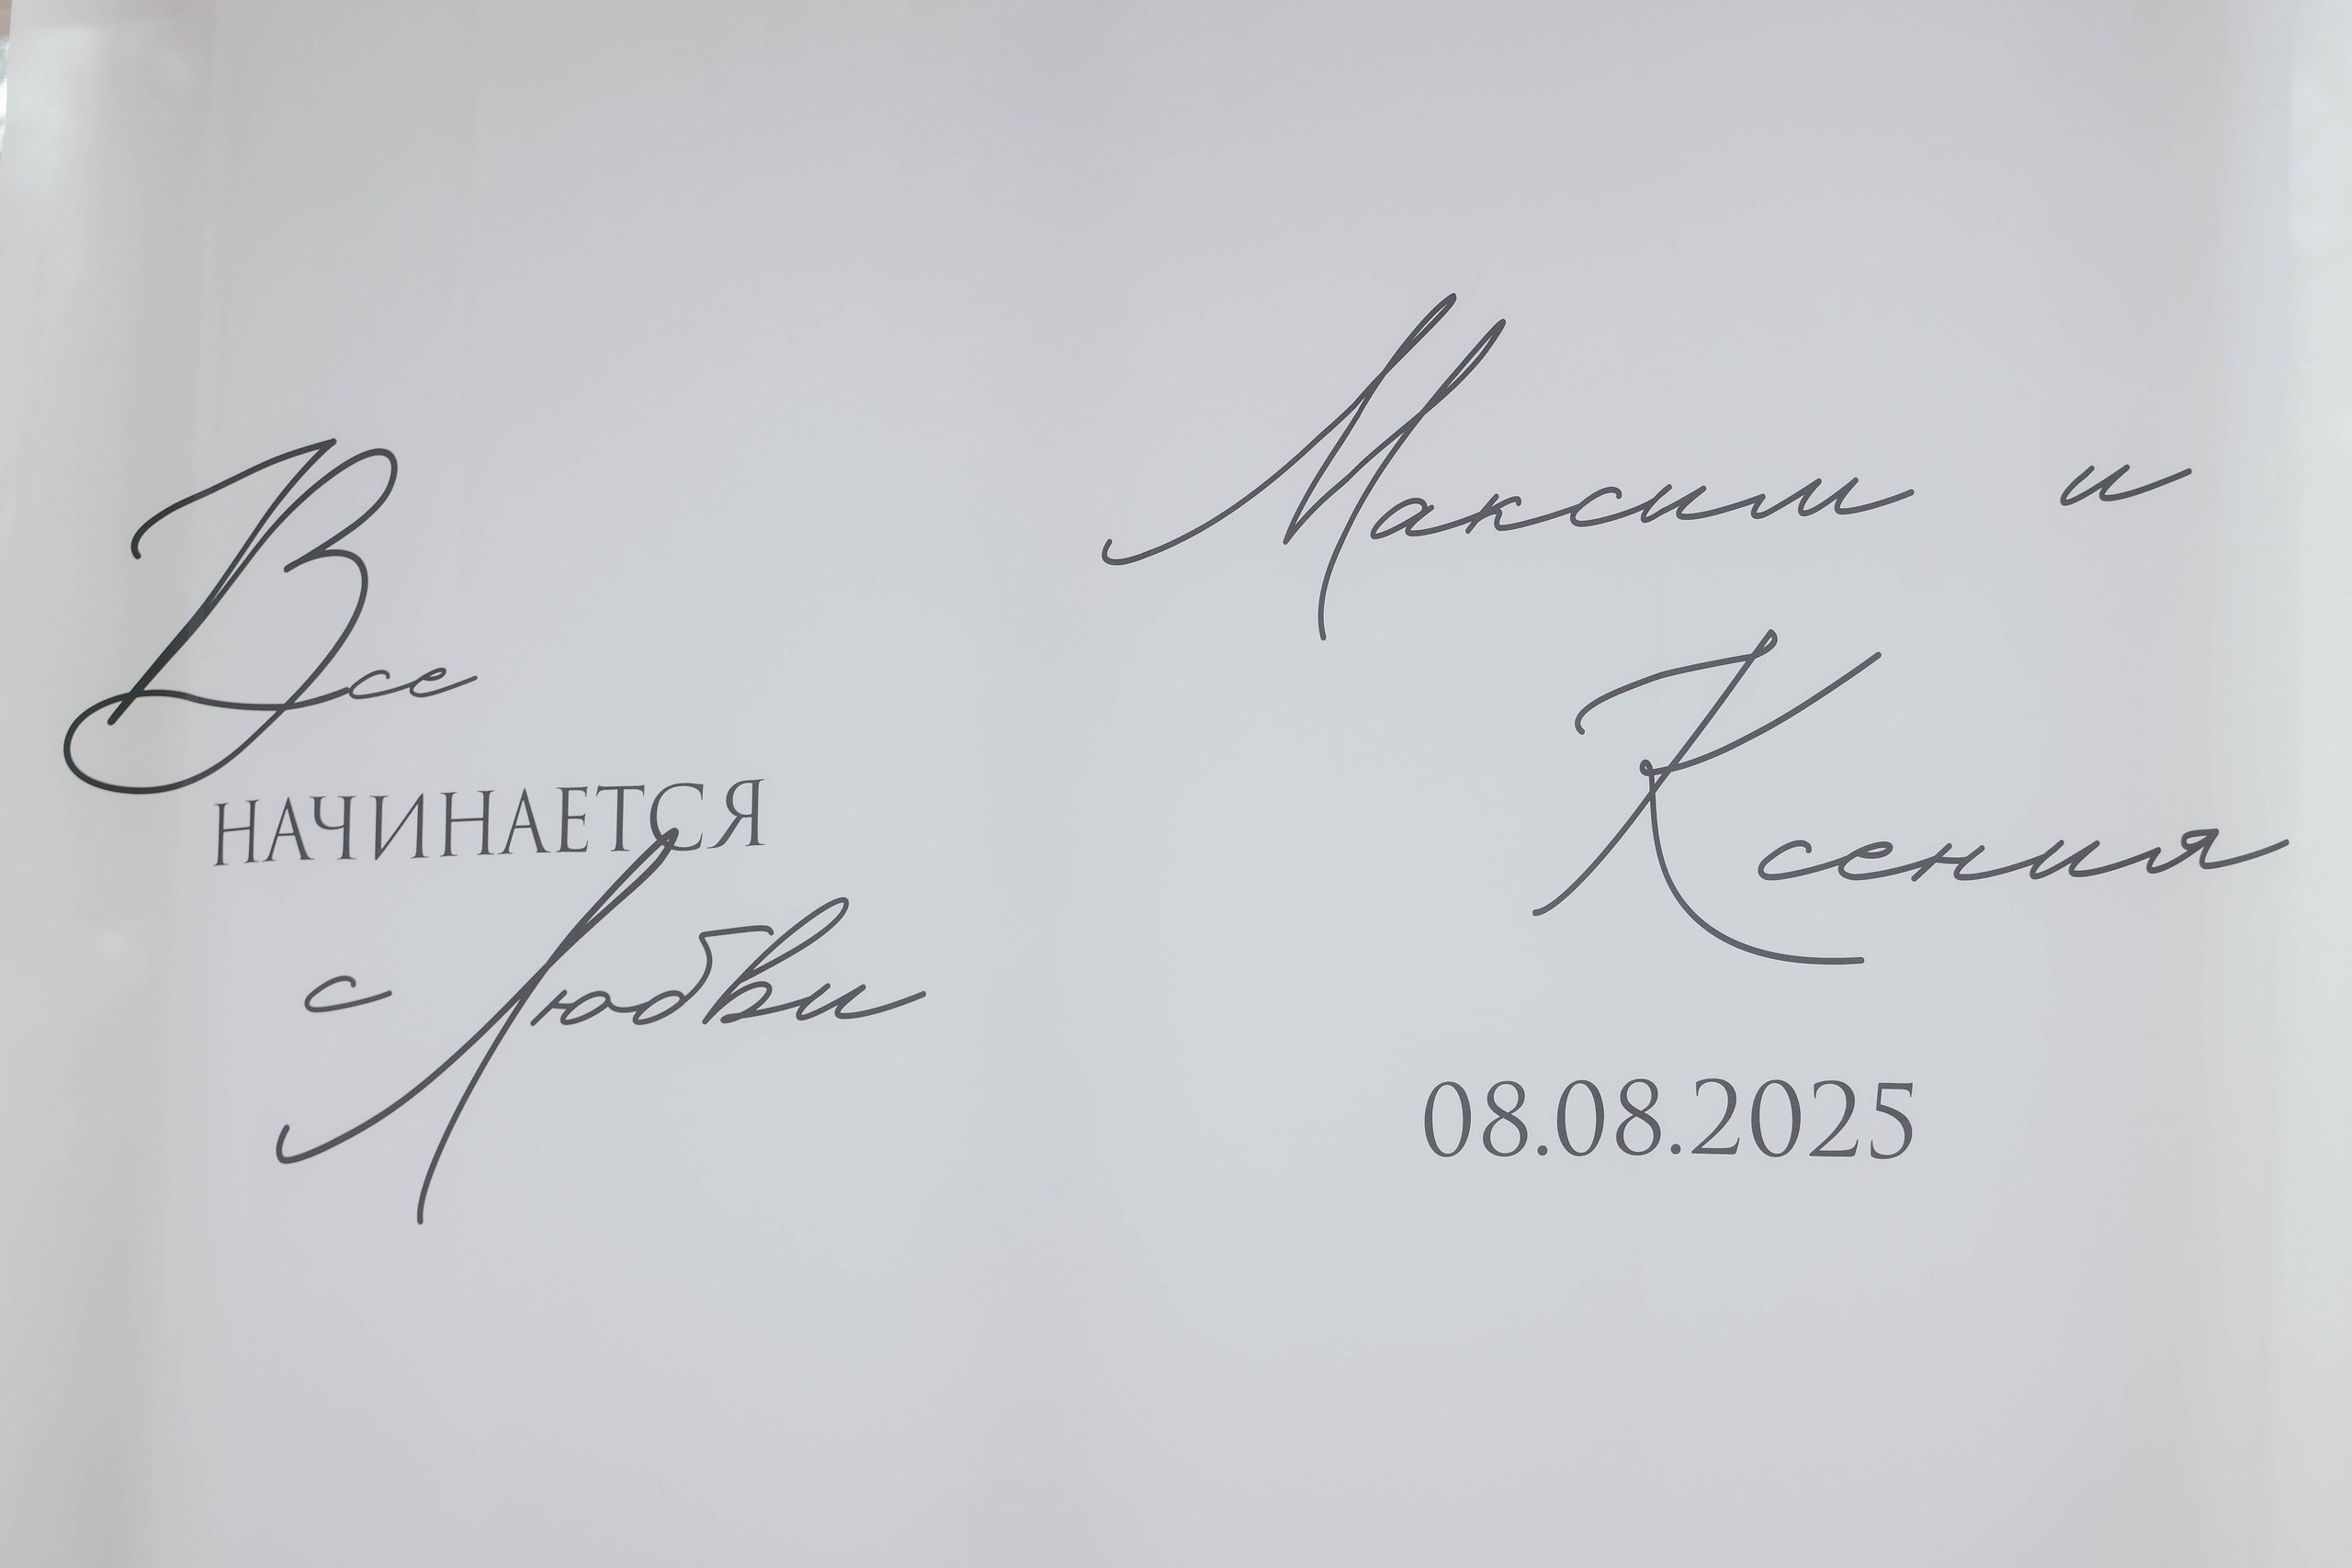 Все
НАЧИНАЕТСЯ
с Любви
Максим и
Ксения
08.08.2025